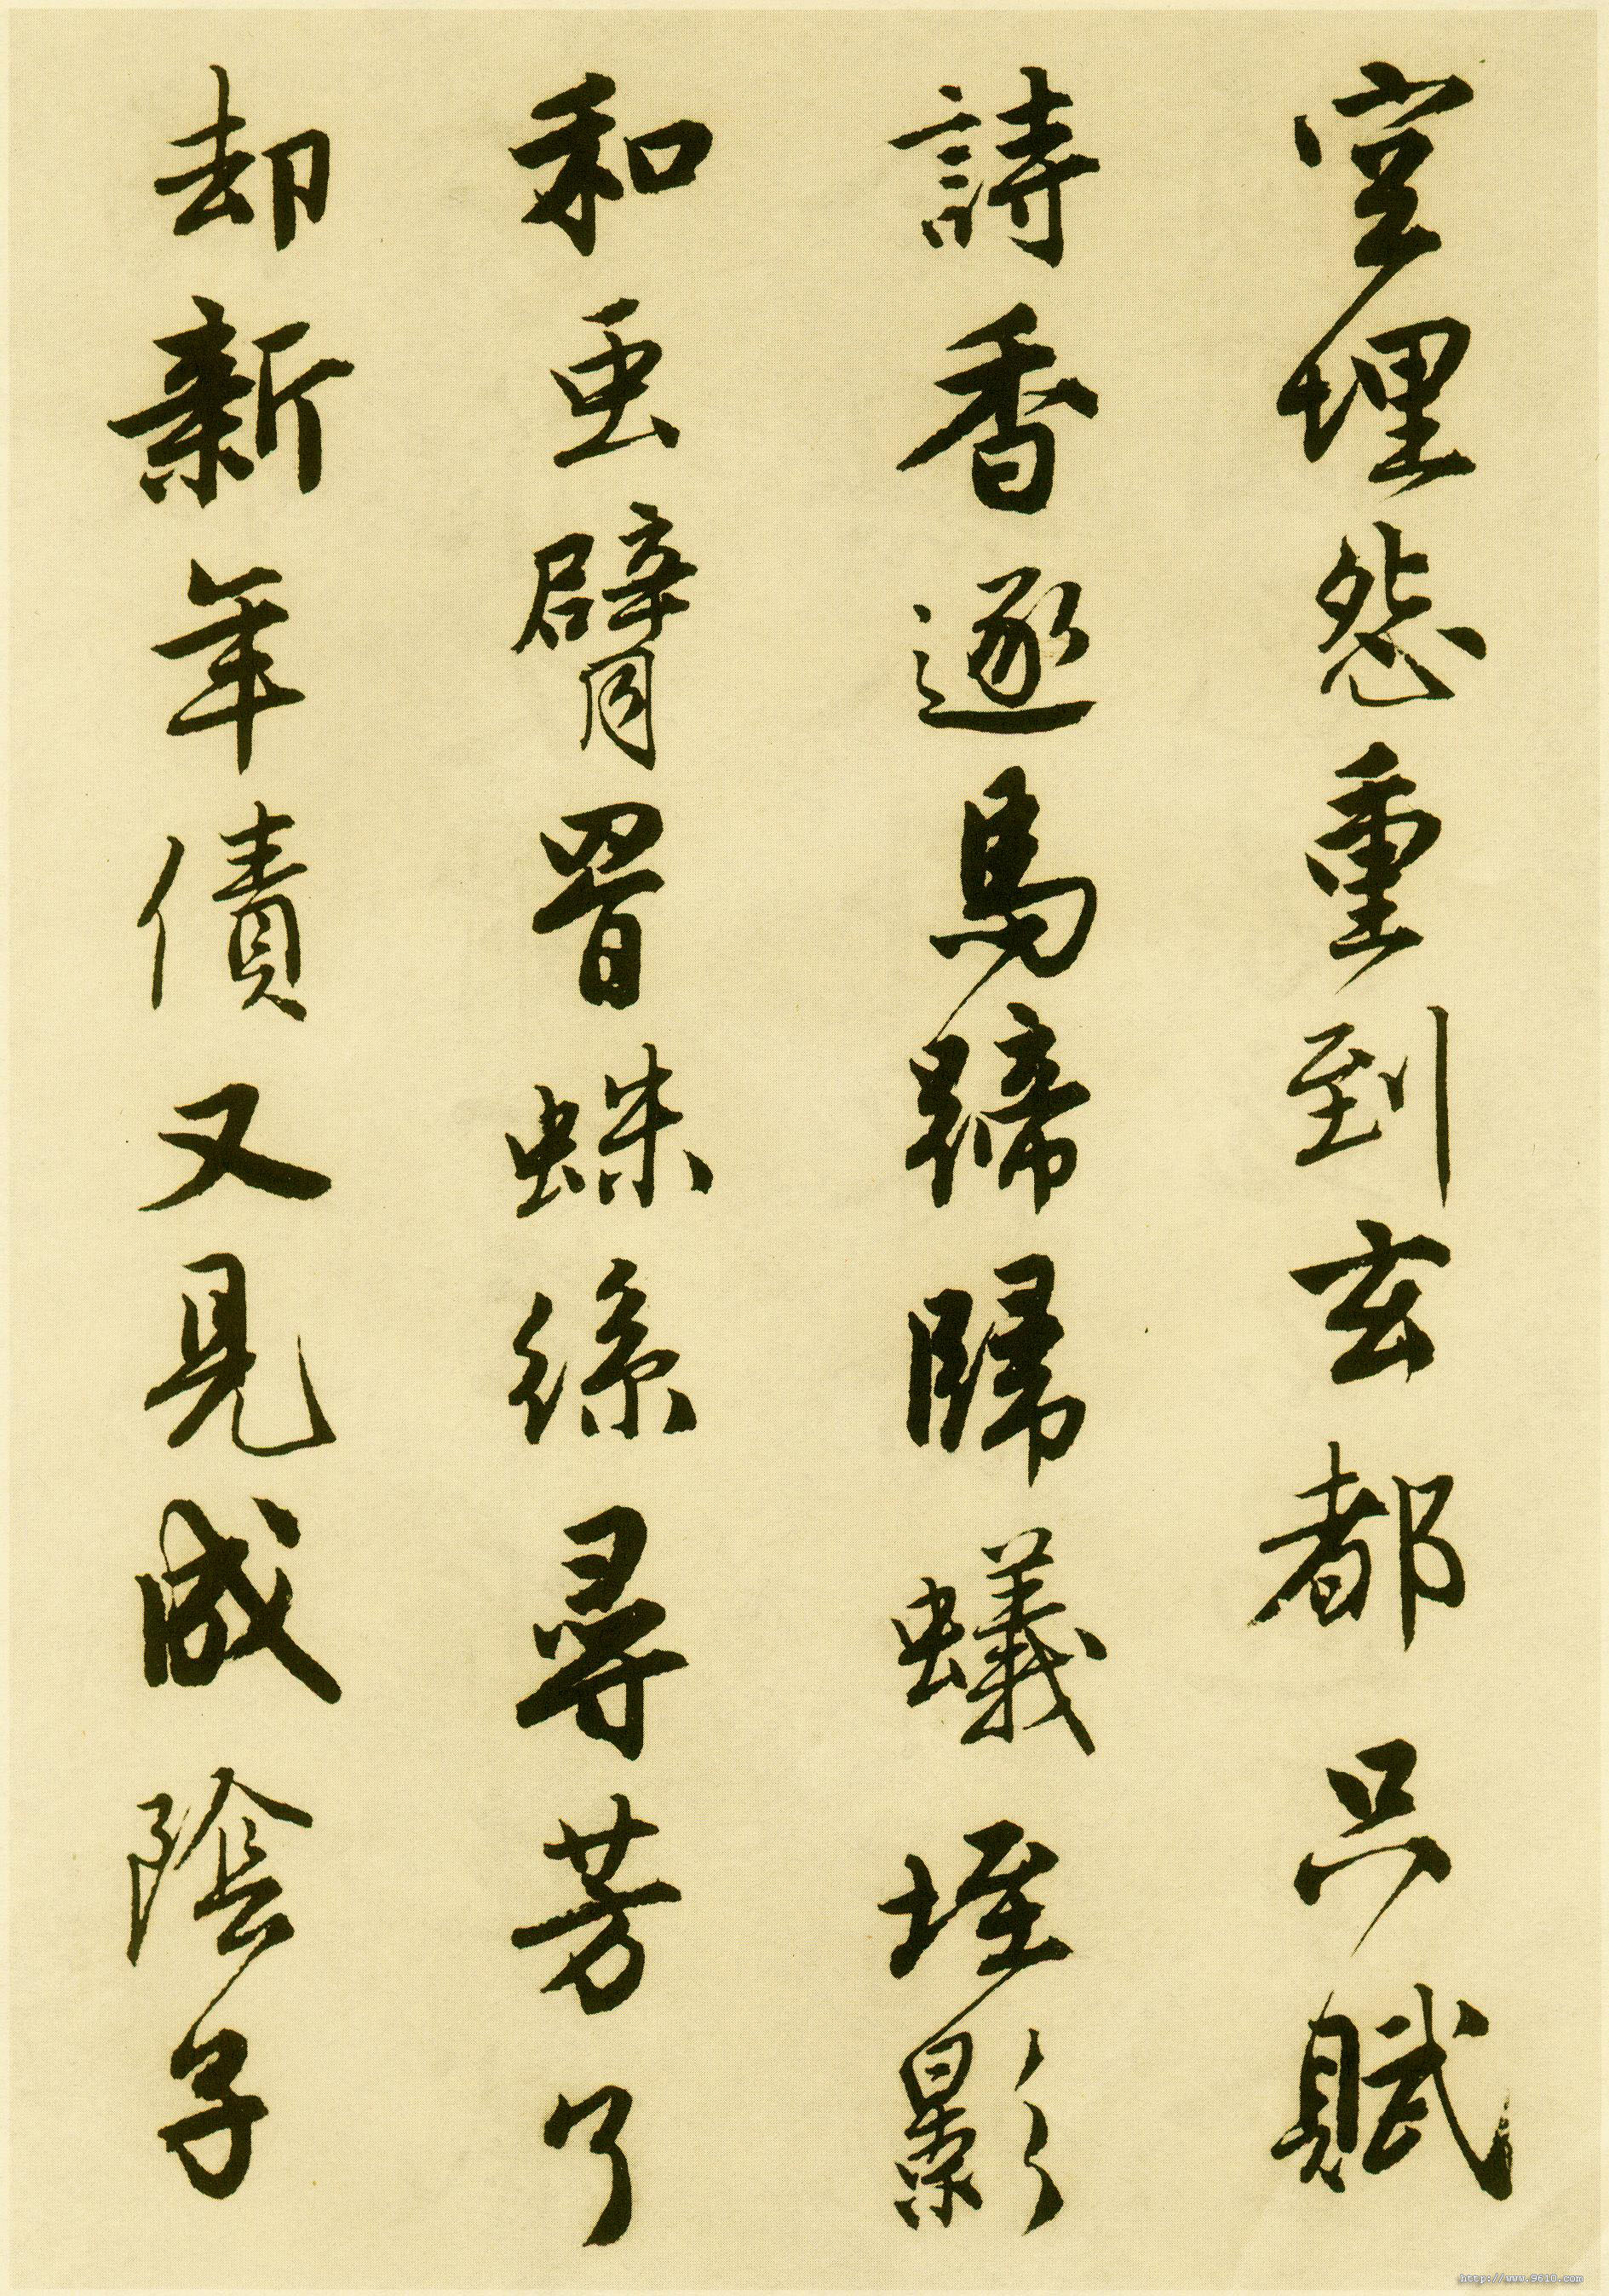 空埋怨重到玄都只賦
詩香逐馬蹄歸蟻垤影
和虫臂罥蛛絲尋芳了
却新年債又見成陰子
http://www.9610.com